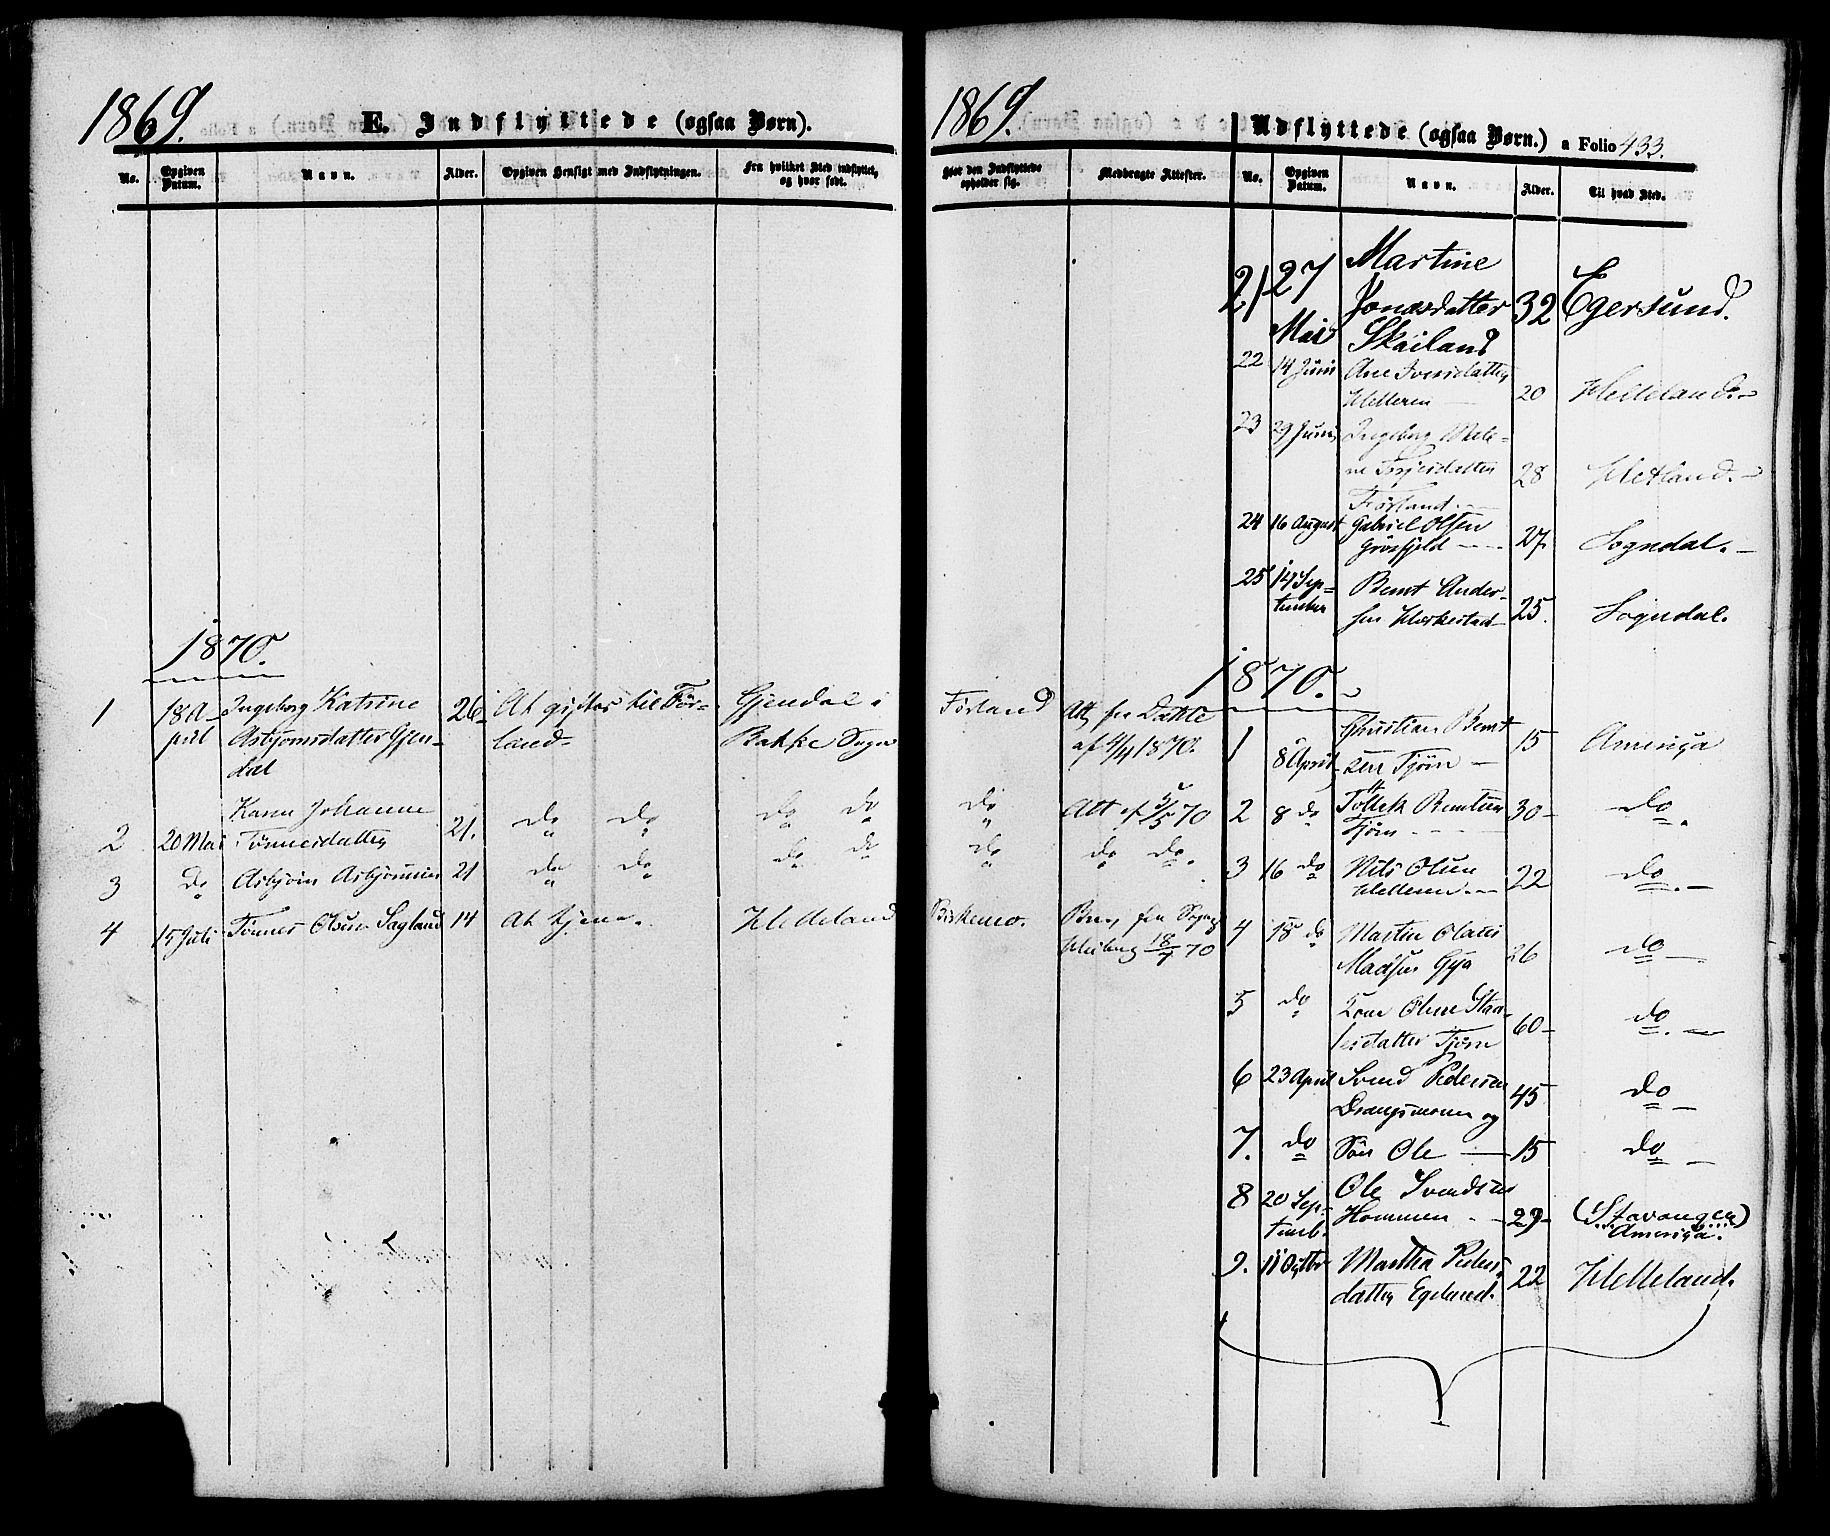 1869.
E. Indflyttede (ogsaa Børn).
No.
Opgiven Datum.
Navn.
Alder.
Opgiven Hensigt med Indflytningen.
Fra hvilket Sted indflyttet, og hvor født.
1870.
1 18 A- Ingeborg Katrine 26 At giftes til För- Gjendal i
pril Asbjørnsdatter Gjen- land Bakke Sogn
dal
Karen Johanne
2 20 Mai Tønnesdatter 21. do do do do
3 do Asbjørn Asbjørnsen 21 do do do do
4 15 Juli Tønnes Olsen Sagland 14 At tjene. Helleland
1869.
Udflyttede (ogsaa Børn.) a Folio 433.
Hvor den Indflyttede opholder sig.
Medbragte Attester.
No.
Opgiven Datum.
Navn.
Alder.
Til hvad Sted.
Martine
21 27 Jonasdatter 32 Egersund.
Mai Skailand
22 14 Juni Ane Iversdatter
Helleren 20 Helleland.
23 29 Juni Ingeborg
Tarjesdatter 28 Hetland.
Förland.
24 16 August Gabriel Olsen
Grösfjeld 27. Sogndal.
25 14 Sep- Bernt Ander-
tember sen 25. Sogndal.
1870.
Förland Att fra
af 4/4 1870. 1 Christian Bernt- 15 Ameriça
8 April sen Tjörn
do Att af 5/5 70 2 8 do Tollek Berntsen 30 do
Tjörn
do do do. 3 16 do Nils Olsen 22 do
Helleren.
Birkemo. fra Sogn
18/7 70 4 18 do Martin Olaus
Madsen Gya 26 do
5 do Olene Staa-
lesdatter Tjörn 60 do
6 23 April Svend Pedersen
Drangsmoen og 45 do
7. do Sön Ole 15 do
8 20 Sep- Ole Svendsen
temb. Hommen 29 (Stavanger)
Ameriça.
9. 11 Octbr Martha Peders-
datter Egelund. 22 Helleland.